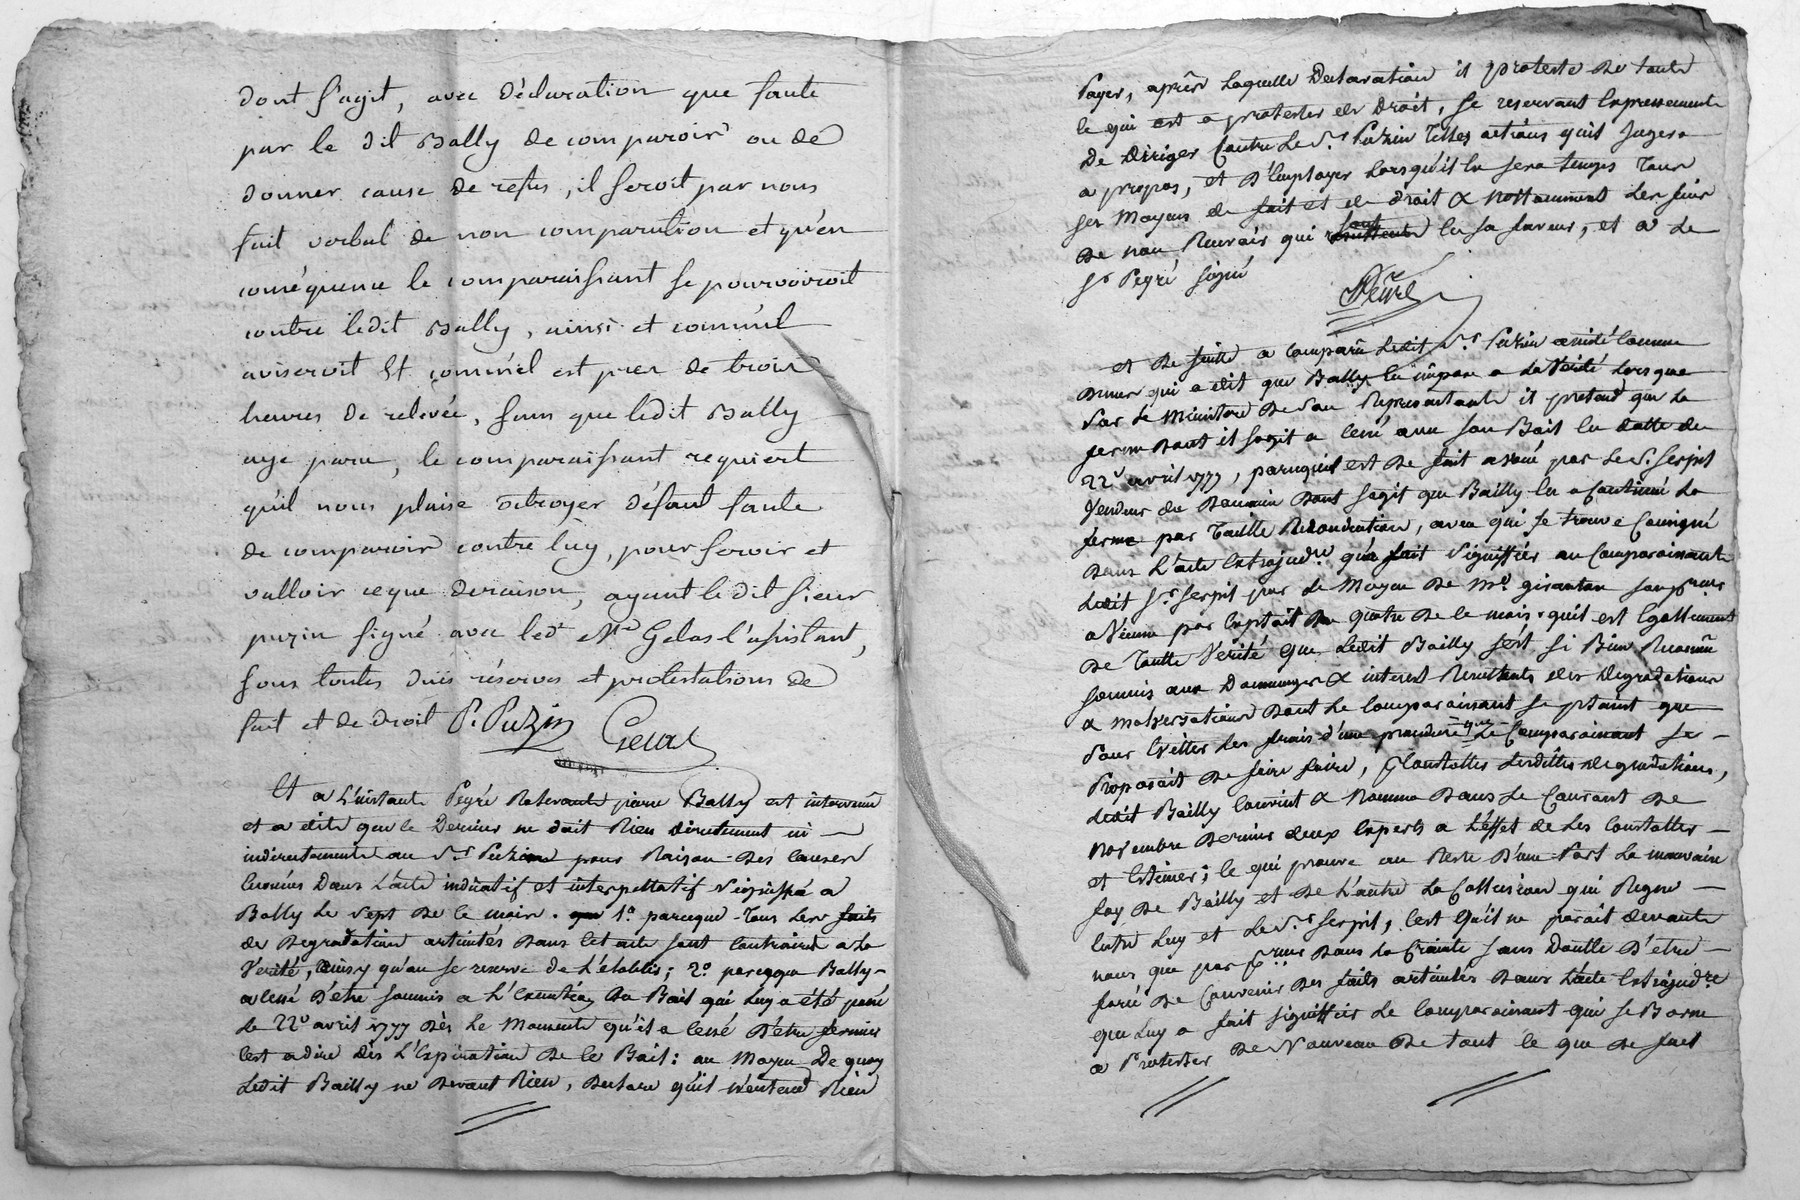 dont s'agit, avec déclaration que faute
par le dit Bally de comparoir ou de
donner cause de refus, il seroit par nous
fait verbal de non comparution et qu'en
conséquence le comparaissant se pourvoiroit
contre ledit Bally, ainsi et comm'il
aviseroit Et comm'il est pres de trois
heures de relevée, sans que ledit Bally
aye paru, le comparaissant requiert
qu'il nous plaise octroyer défaut faute
de comparoir contre luy, pour servir et
valloir ce que de raison, ayant le dit sieur
puzin signé avec led. Me Gelas l'assistant,
sous toutes dues réserves et protestations de
fait et de droit P. Puzin Gelas
Et a L'instant Peyré pierre Bally est intervenu
et a dit que le Dernier ne doit Rien directement ni
indirectement au Sr Puzin pour Raison des causes
Enoncées Dans L'acte indicatif et interpellatif signiffié a
Bally Le sept de ce mois. 1º parceque Tous les faits
de Degradation articulés Dans cet acte sont contraires a la
Verité, ainsy qu'on se reserve de L'etablir; 2º parceque Bally
a cessé D'etre soumis a L' Du Bail qui Luy a été passé
Le 22e avril 1777 Dès Le Moment qu'il a cessé D'etre fermier
cest adire dès L'Expiration de ce Bail: au Moyen De quoy
Ledit Bailly ne Devant Rien, Declare qu'il n'entend Rien
Payer, après Laquelle Declaration il proteste de toute
ce qui est a protester de Droit, se reservant Expressement
De Diriger Contre Le Sr Puzin Telles actions quil Jugera
a propos, et D'Employer Lorsqu'il en sera temps Tous
ses Moyens de fait et de droit & nottamment Les fins
De non Recevoir qui sont en sa faveur, et a Le
Sr Peyré signé
Peyré
et De suitte a comparu Ledit Sr Puzin
qui a dit que Bailly en impose a La Verité Lorsque
Par Le Ministere De son Representant il pretend que La
ferme Dont il sagit a cessé avec son Bail en datte du
22e avril 1777, parceque est De fait avoué par Le Sr Serpit
Vendeur du Domaine Dont sagit que Bailly en a Continué La
ferme par Taitte Reconduction, aveu qui se trouve Consigné
Dans L'acte Extrajudre. qu'a fait signiffier au Comparoissant
Ledit Sr. Serpit par Le Moyen De Me. son
a Vienne par Exploit Du quatre De ce mois. quil est Egallement
De Toutte Verité que Ledit Bailly s'est si Bien Reconnu
soumis aux Dommages & interest Resultants des Degradations
& malversations Dont Le Comparoissant se plaint que
Pour Eviter Les frais d'une procedure que Le Comparoissant se
Proposoit De faire faire, Constatter Lesdittes Degradations,
Ledit Bailly Convint & Nomma Dans Le Courant De
Novembre Dernier deux Experts a L'effet de Les Constatter
et Estimer; ce qui prouve au Reste D'une Part La mauvaise
foy De Bailly et De L'autre La Collusion qui Regne
Entre Luy et Le Sr Serpit, C'est Qu'il ne paroit devant
nous que par Dans La Crainte sans Doutte D'etre
forcé De Convenir Des faits articulés Dans L'acte Extrajudre
que Luy a fait signiffier Le Comparoissant qui se Borne
a Protester De Nouveau De tout ce que De fait